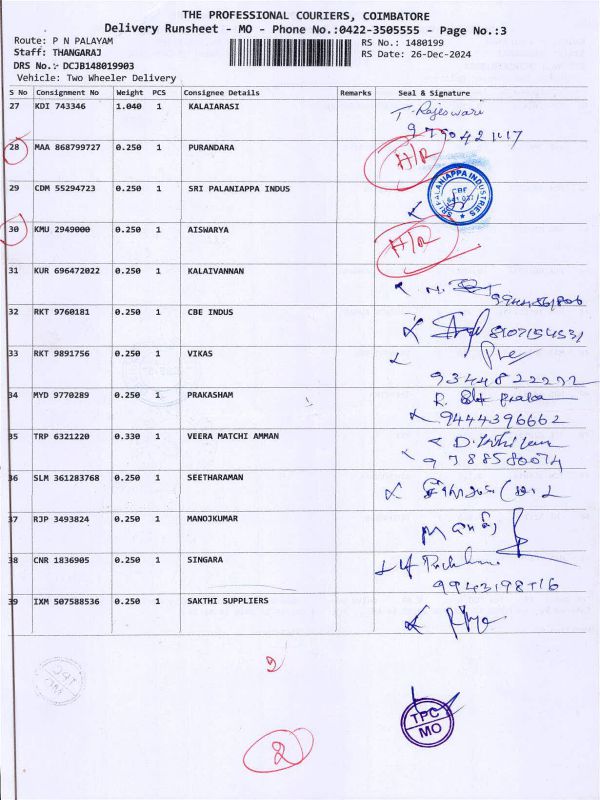 THE PROFESSIONAL COURIERS, COIMBATORE
Delivery Runsheet - MO - Phone No.:0422-3505555 - Page No.:3
Route: P N PALAYAM RS No.: 1480199
Staff: THANGARAJ RS Date: 26-Dec-2024
DRS No.: DCJB148019903
Vehicle: Two Wheeler Delivery
S No Consignment No Weight PCS Consignee Details Remarks Seal & Signature
27 KDI 743346 1.040 1 KALAIARASI T. Rajeswari
28 MAA 868799727 0.250 1 PURANDARA
29 CDM 55294723 0.250 1 SRI PALANIAPPA INDUS SRI PALANIAPPA INDUSTRIES
30 KMU 2949000 0.250 1 AISWARYA
31 KUR 696472022 0.250 1 KALAIVANNAN
32 RKT 9760181 0.250 1 CBE INDUS
33 RKT 9891756 0.250 1 VIKAS
9344822222
34 MYD 9770289 0.250 1 PRAKASHAM
9444396662
35 TRP 6321220 0.330 1 VEERA MATCHI AMMAN
9788580074
36 SLM 361283768 0.250 1 SEETHARAMAN
37 RJP 3493824 0.250 1 MANOJKUMAR
38 CNR 1836905 0.250 1 SINGARA
39 IXM 507588536 0.250 1 SAKTHI SUPPLIERS
2
2
TPC
MO